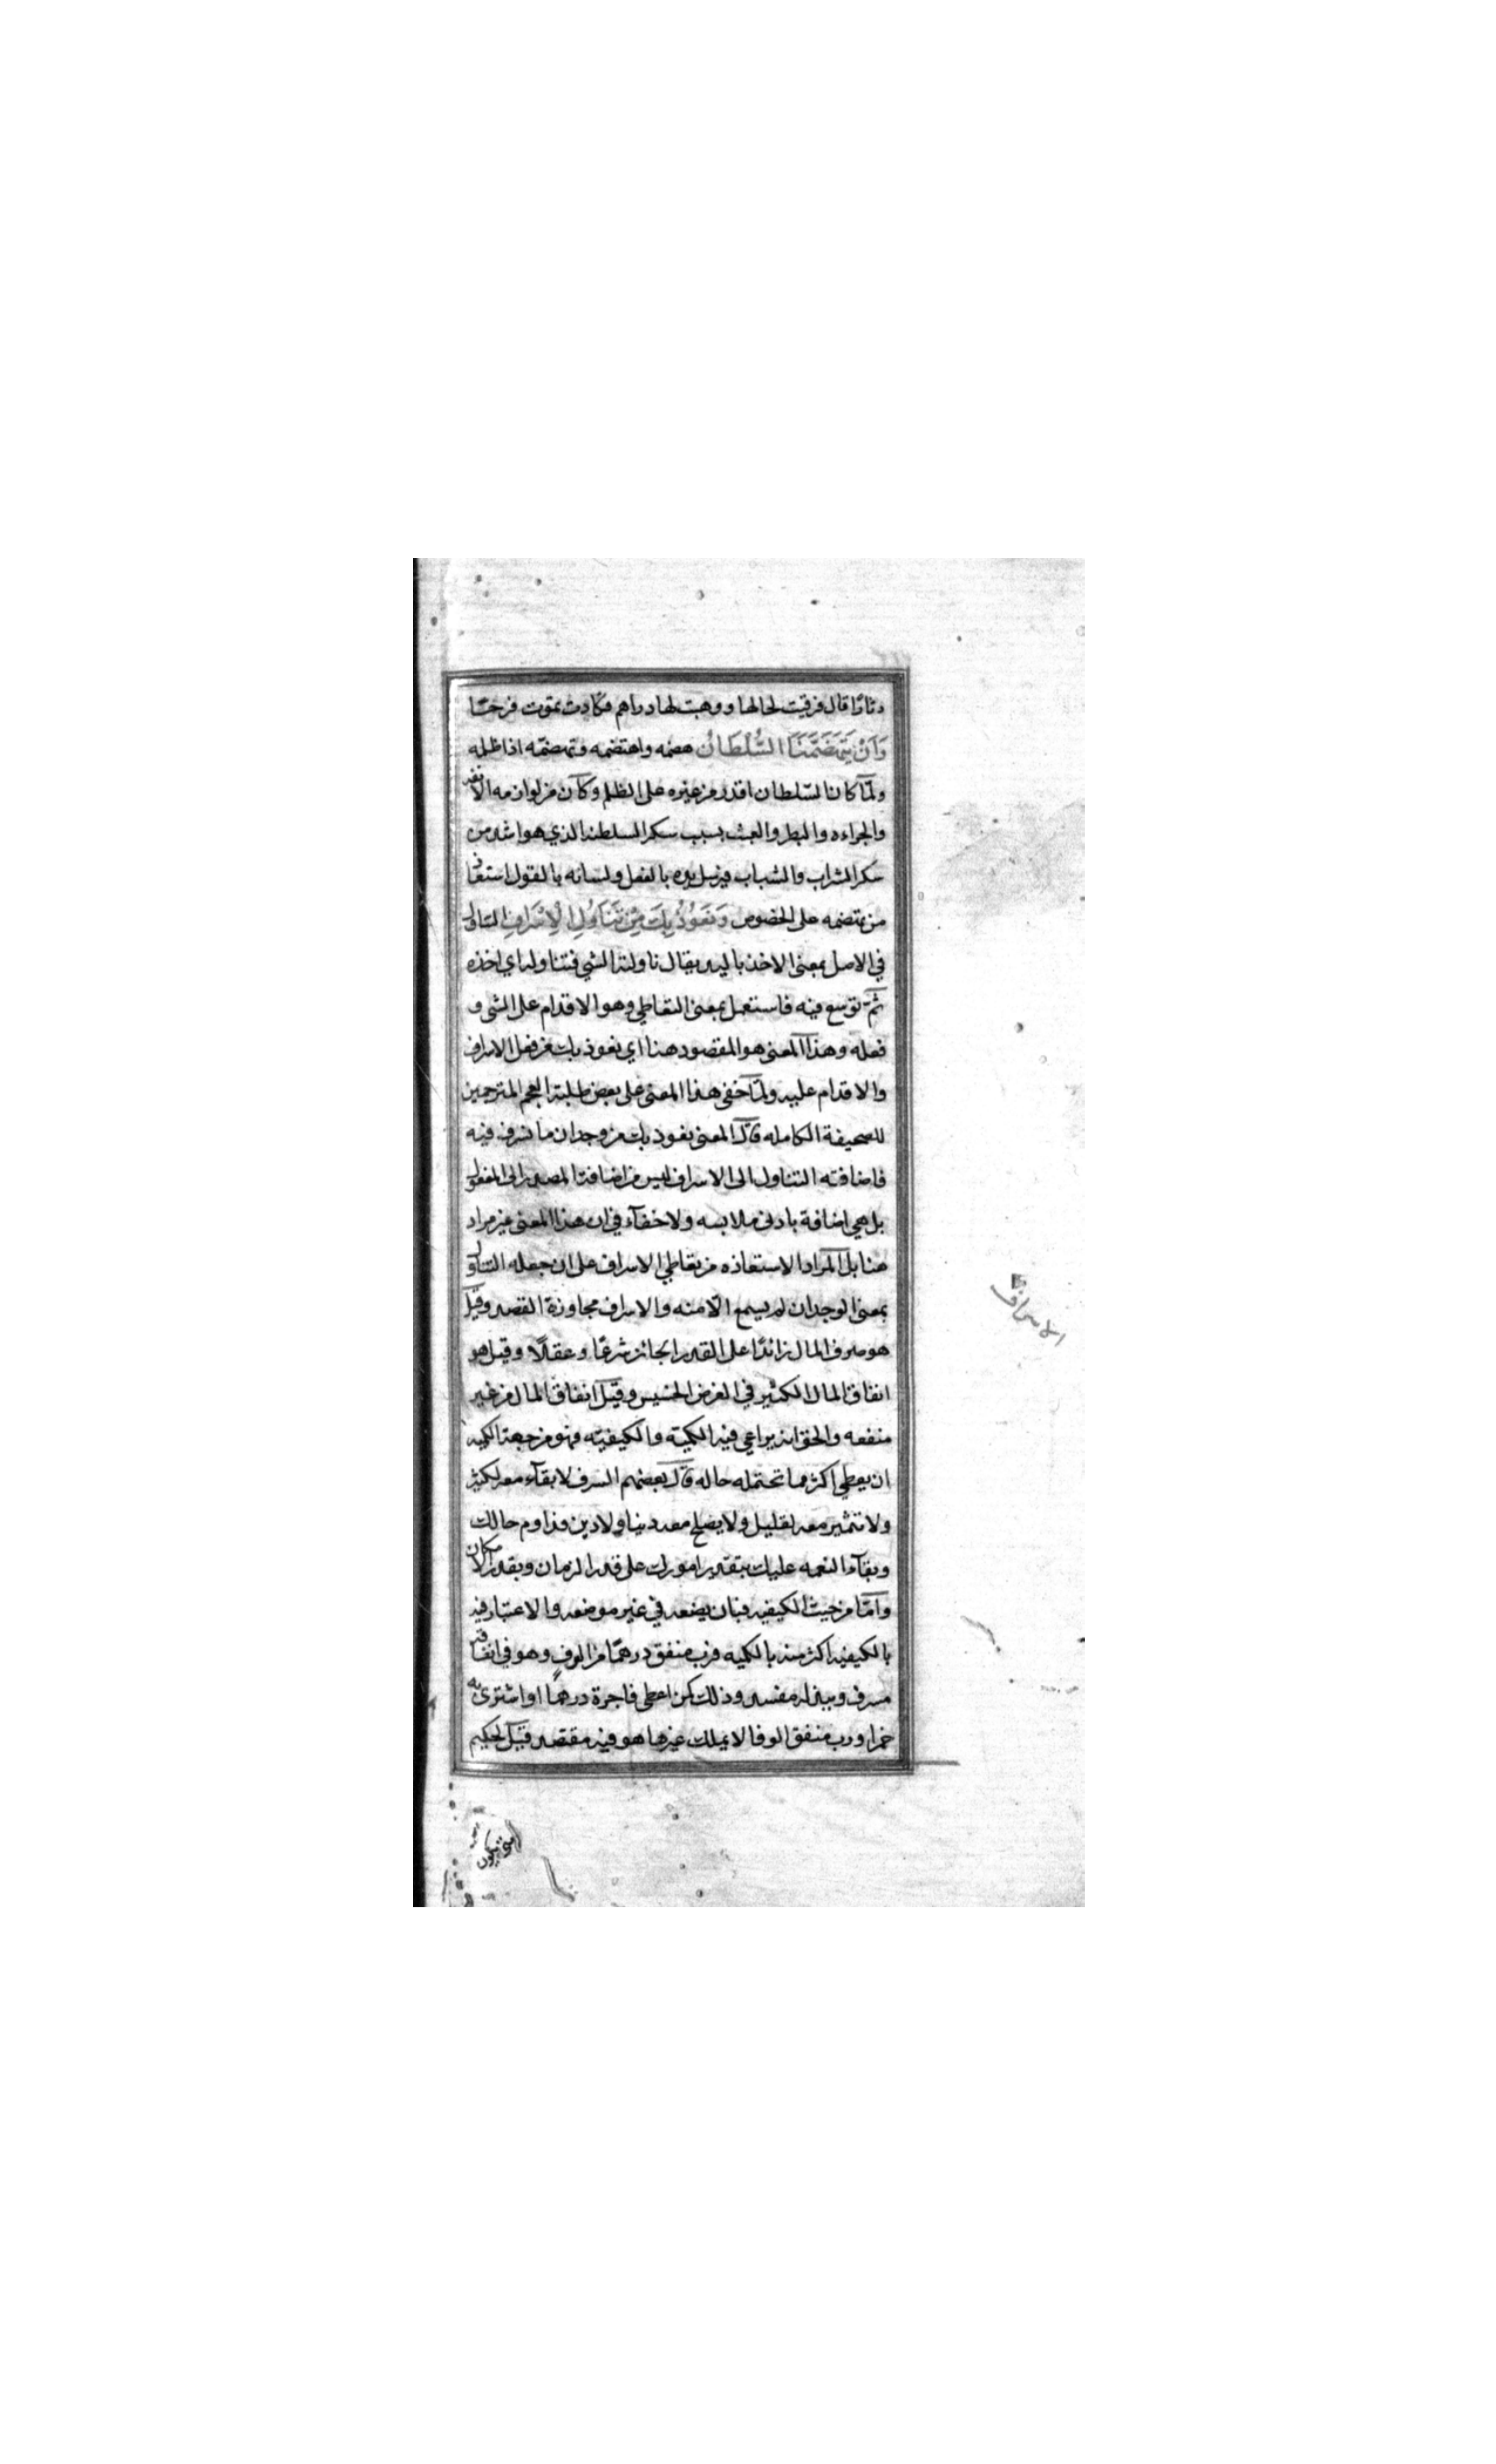 دثارًا قال فرقيت لحالها ووهبت لها دراهم فكادت تموت فرحًا
وَاَنْ يَتَهَضَّمَنَا السُّلْطَانُ هضمه واهتضمه وتهضمه اذا ظلمه
ولمّا كان السّلطان اقدر من غيره على الظلم وكان من لوازمه الانفه
والجراءه والبطر والعبث بسبب سكر السلطنه الذي هو اشد من
سكر الشراب والشباب فيرسل يده بالفعل ولسانه بالقول استعاذ
من تهضمه على الخصوص وَنَعُوْذُ بِكَ مِنْ تَنَاوُلِ الْاِسْرَافِ التناول
في الاصل بمعنى الاخذ باليد يقال ناولته الشي فتناوله اي اخذه
ثمّ توسع فيه فاستعمل بمعنى التعاطي وهو الاقدام على الشي و
فعله وهذا المعنى هو المقصود هنا اي نعوذ بك من فعل الاسراف
والاقدام عليه ولمّا خفي هذا المعنى على بعض طلبة العجم المترجمين
للصحيفة الكامله قال المعنى نعوذ بك من وجدان ما نسرف فيه
فاضافته التناول الى الاسراف ليس من اضافة المصدر الى المفعول
بل هي اضافة بادنى ملابسه ولا خفآء في ان هذا المعنى غير مراد
هنا بل المراد الاستعاذه من تعاطي الاسراف على ان جعله التناول
بمعنى الوجدان لم يسمع الّا منه والاسراف مجاوزة القصد وقيل
هو صرف المال زائدًا على القدر الجائز شرعًا وعقلًا وقيل هو
انفاق المال الكثير في الغرض الخسيس وقيل انفاق المال من غير
منفعه والحق انه يراعي فيه الكمية والكيفيّه فهو من جهة الكميه
ان يعطي اكثر مما تحتمله حاله قال بعضهم السرف لا بقآء معه لكثير
ولا تثمير معه لقليل ولا يصلح معه دنيا ولا دين فداوم حالك
وبقآء النعمه عليك بتقدير امورك على قدر الزمان وبقدر الامكان
وامّا من حيث الكيفيه فبان يضعه في غير موضعه والاعتبار فيه
بالكيفيه اكثر منه بالكميه فرب منفق درهمًا من الوف وهو في انفاقه
مسرف وببذله مفسد وذلك كمن اعطى فاجرة درهمًا او اشترى به
خمرا ورب منفق الوفا لا يملك غيرها هو فيه مقتصد قيل لحكيم
الاسراف